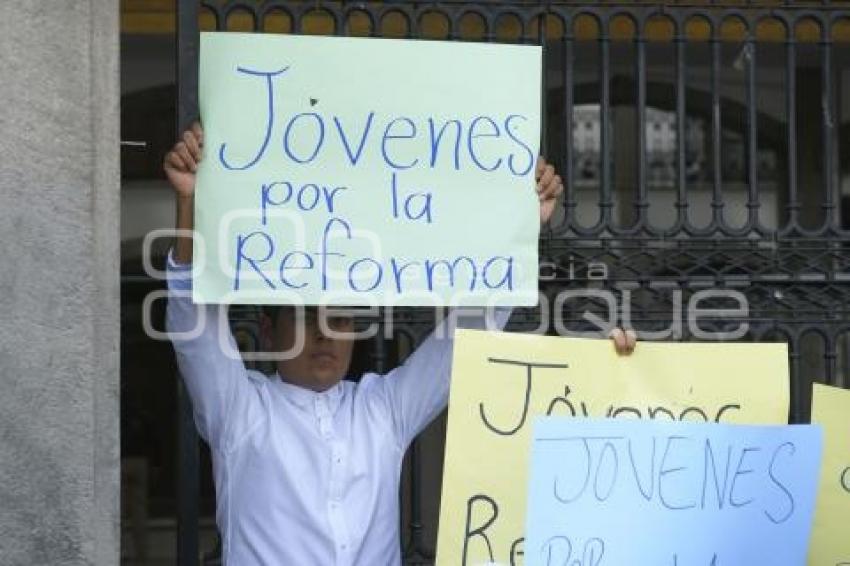 Jóvenes
por la
Reforma
agencia
enfoque
Jóvenes
Re
JOVENES
POR